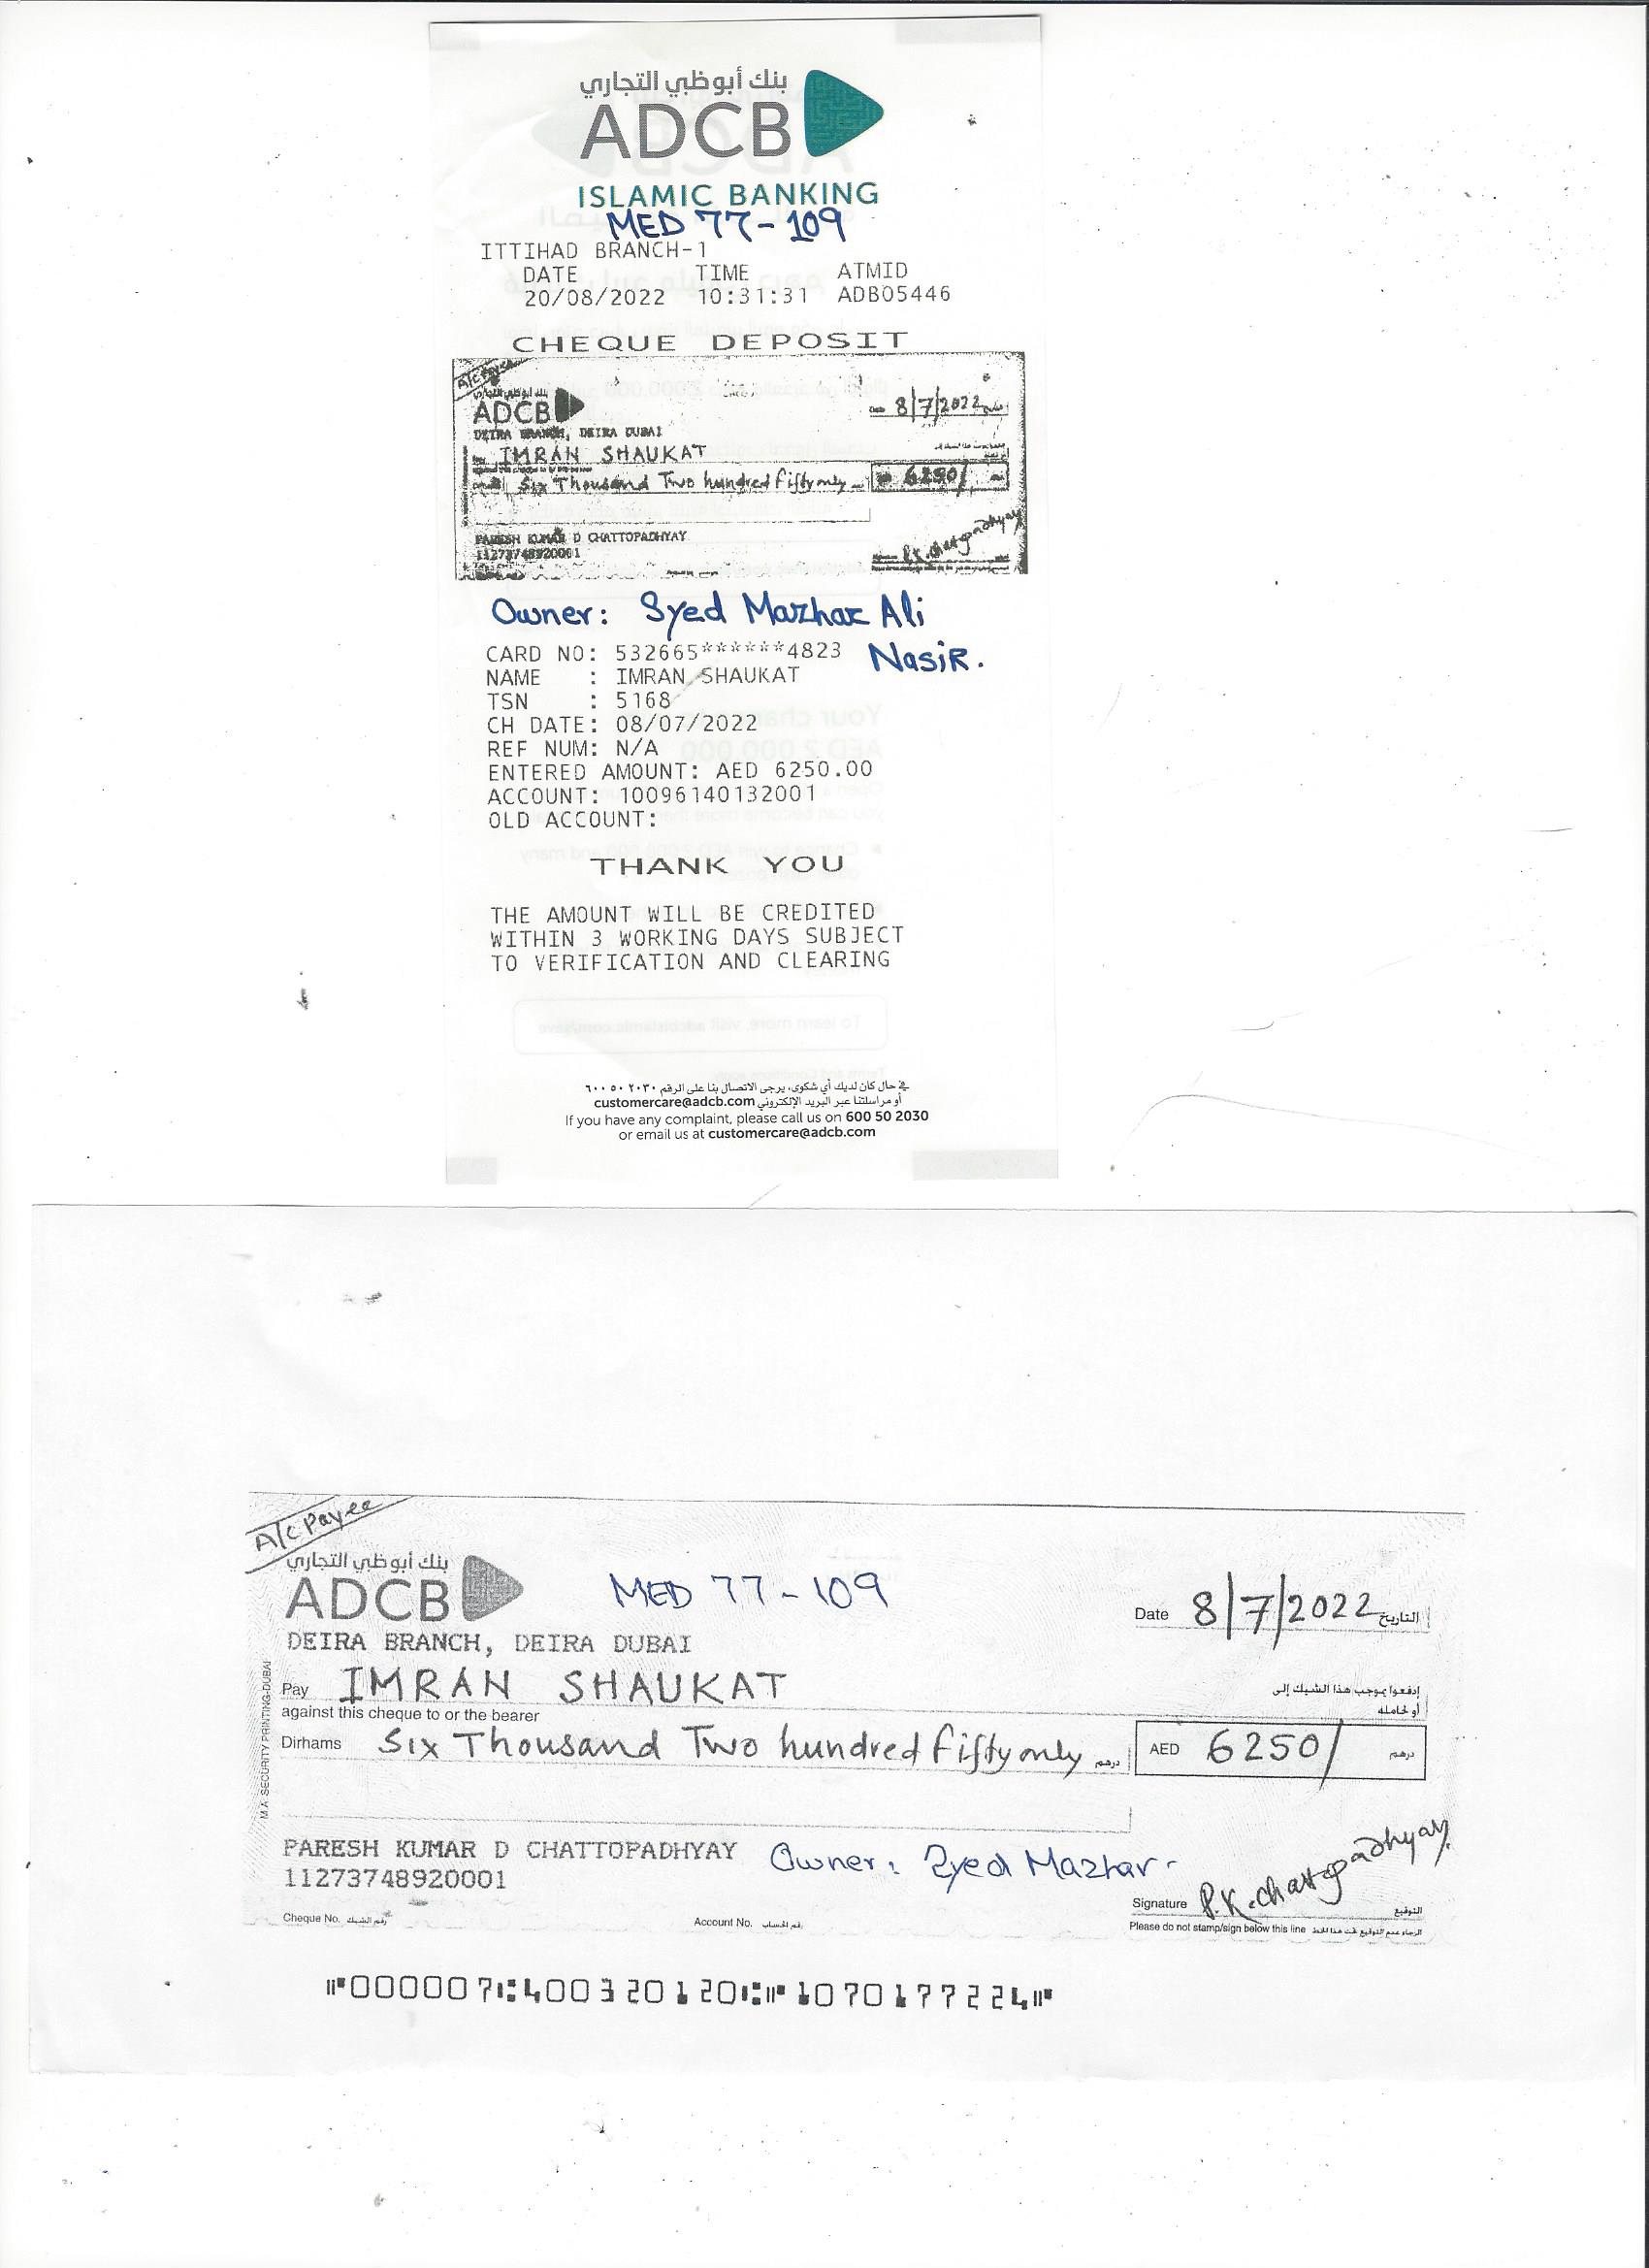 بنك أبوظبي التجاري
ADCB
ISLAMIC BANKING
MED 77-109
ITTIHAD BRANCH-1
DATE TIME ATMID
20/08/2022 10:31:31 ADB05446
CHEQUE DEPOSIT
A/C Payee
بنك أبوظبي التجاري
ADCB
8/7/2022
DEIRA BRANCH, DEIRA DUBAI
IMRAN SHAUKAT
Six Thousand Two hundred Fifty only 6250/
PARESH KUMAR D CHATTOPADHYAY
11273748920001
P.K.Chattopadhyay
Owner: Syed Mazhar Ali
Nasir.
CARD NO: 532665******4823
NAME : IMRAN SHAUKAT
TSN : 5168
CH DATE: 08/07/2022
REF NUM: N/A
ENTERED AMOUNT: AED 6250.00
ACCOUNT: 10096140132001
OLD ACCOUNT:
THANK YOU
THE AMOUNT WILL BE CREDITED
WITHIN 3 WORKING DAYS SUBJECT
TO VERIFICATION AND CLEARING
في حال كان لديك أي شكوى، يرجى الاتصال بنا على الرقم ٢٠٣٠ ٥٠ ٦٠٠
أو مراسلتنا عبر البريد الإلكتروني customercare@adcb.com
If you have any complaint, please call us on 600 50 2030
or email us at customercare@adcb.com
A/c Payee
بنك أبوظبي التجاري
ADCB
MED 77-109
Date 8/7/2022 التاريخ
DEIRA BRANCH, DEIRA DUBAI
Pay IMRAN SHAUKAT إدفعوا بموجب هذا الشيك إلى
against this cheque to or the bearer أو لحامله
Dirhams Six Thousand Two hundred Fifty only درهم AED 6250/ درهم
M.A. SECURITY PRINTING-DUBAI
PARESH KUMAR D CHATTOPADHYAY Owner: Syed Mazhar-
11273748920001
Signature P.K.Chattopadhyay التوقيع
Cheque No. رقم الشيك Account No. رقم الحساب Please do not stamp/sign below this line الرجاء عدم التوقيع تحت هذا الخط
⑈000007⑆400320120⑆⑈1070177224⑈